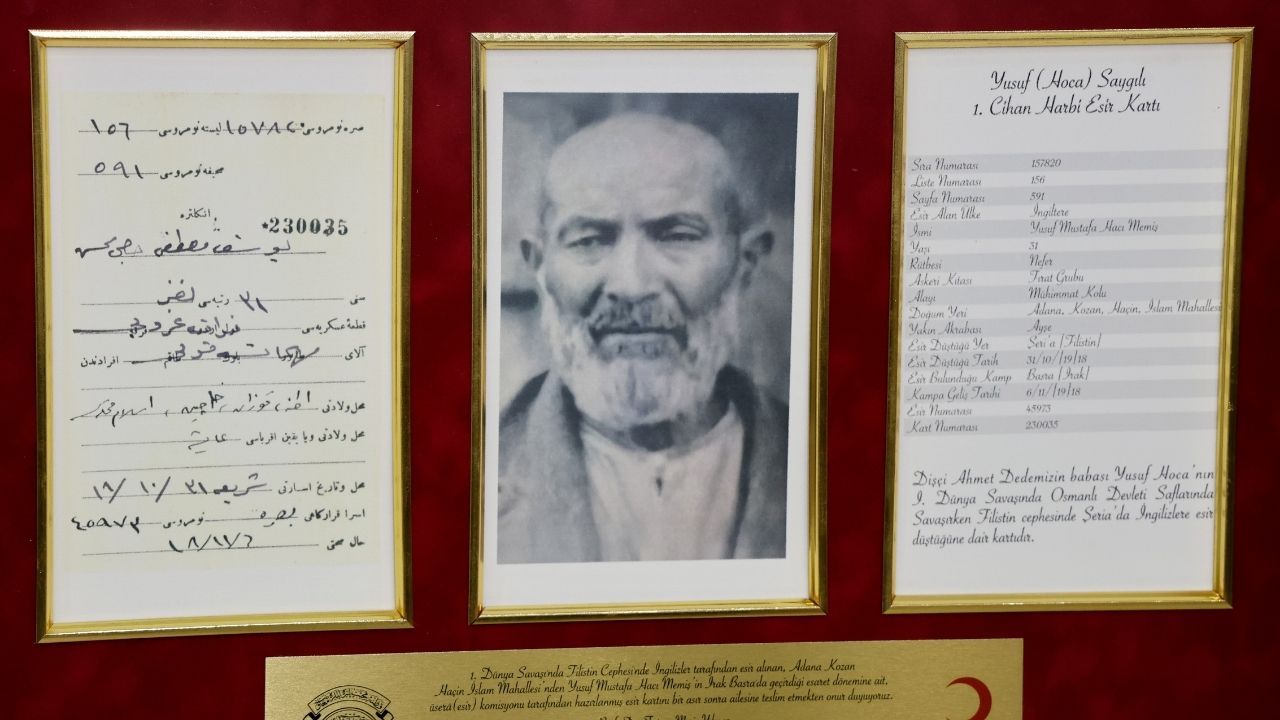 صره نومروسی ١٥٧٨٢٠ لیسته نومروسی ١٥٦
صحیفه نومروسی ٥٩١
انكلتره
*230035
یوسف مصطفى حاجی ممش
سنی ٣١ رتبه‌سی نفر
قطعهٔ عسكریه‌سی
آلای افرادندن
محل ولادتی اطنه، قوزان، حاچین، اسلام محله‌سی
محل ولادتی ویا یقین اقرباسی عایشه
محل وتاریخ اسارتی شریعه ٣١/١٠/١٨
اسرا قرارگاهی بصره نومروسی ٤٥٩٧٣
حال صحی ٦/١١/١٨
Yusuf (Hoca) Saygılı
1. Cihan Harbi Esir Kartı
Sıra Numarası 157820
Liste Numarası 156
Sayfa Numarası 591
Esir Alan Ülke İngiltere
İsmi Yusuf Mustafa Hacı Memiş
Yaşı 31
Rütbesi Nefer
Askeri Kıtası Fırat Grubu
Alayı Mühimmat Kolu
Doğum Yeri Adana, Kozan, Haçin, İslam Mahallesi
Yakın Akrabası Ayşe
Esir Düştüğü Yer Şeri'a [Filistin]
Esir Düştüğü Tarih 31/10/[19]18
Esir Bulunduğu Kamp Basra [Irak]
Kampa Geliş Tarihi 6/11/[19]18
Esir Numarası 45973
Kart Numarası 230035
Dişçi Ahmet Dedemizin babası Yusuf Hoca'nın
I. Dünya Savaşında Osmanlı Devleti Saflarında
Savaşırken Filistin cephesinde Şeria'da İngilizlere esir
düştüğüne dair kartıdır.
1. Dünya Savaşı'nda Filistin Cephesi'nde İngilizler tarafından esir alınan, Adana Kozan
Haçin İslam Mahallesi'nden Yusuf Mustafa Hacı Memiş'in Irak Basra'da geçirdiği esaret dönemine ait,
üsera (esir) komisyonu tarafından hazırlanmış esir kartını bir asır sonra ailesine teslim etmekten onur duyuyoruz.